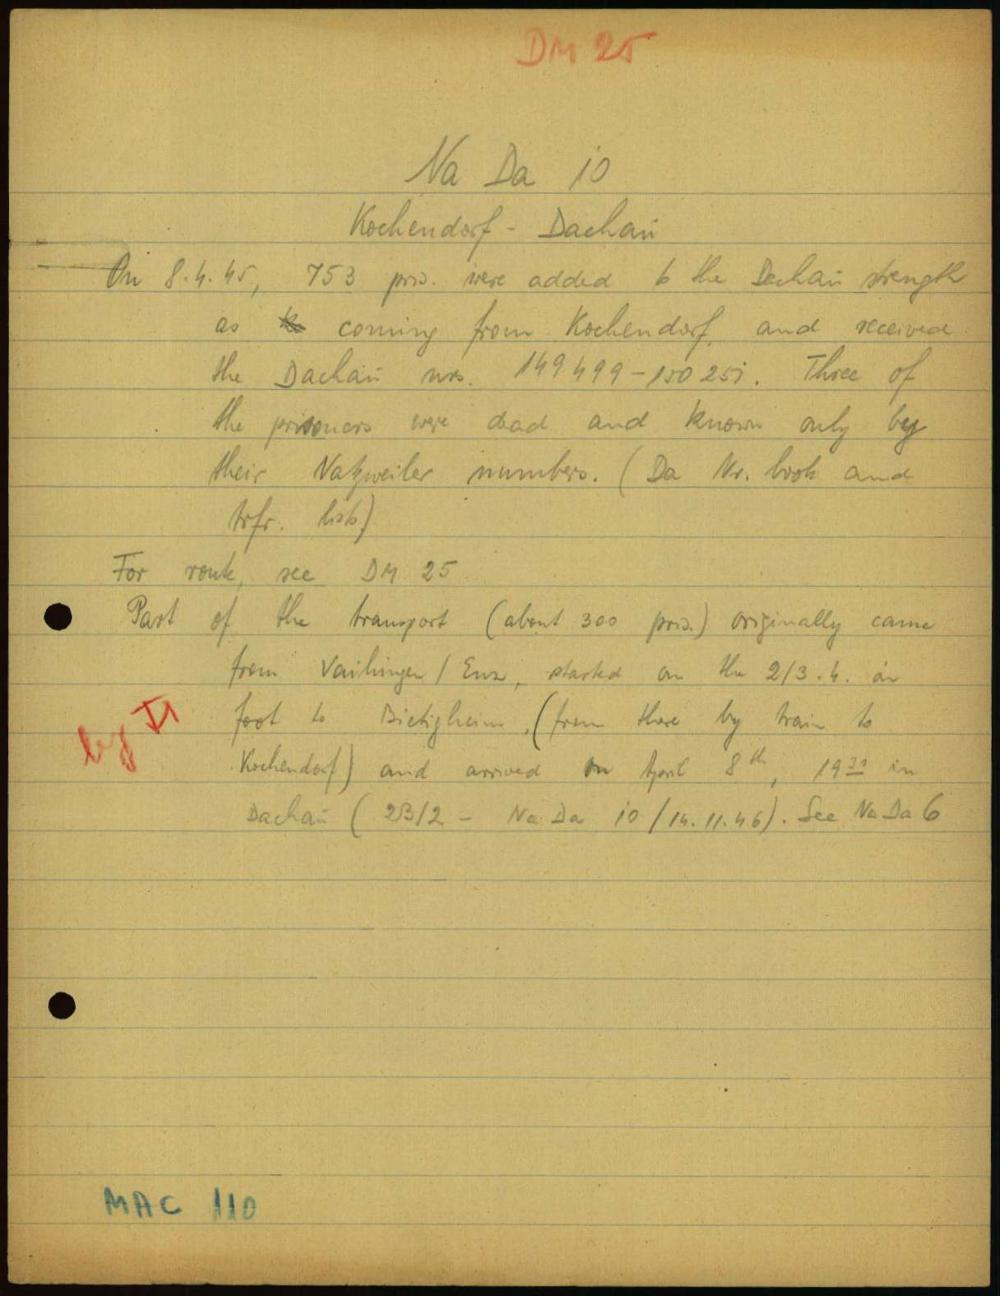 DM 25
Na Da 10
Kochendorf - Dachau
On 8.4.45, 753 pris. were added to the Dachau strength
as coming from Kochendorf, and received
the Dachau nrs. 149499-150251. Three of
the prisoners were dead and known only by
their Natzweiler numbers. (Da Nr. book and
trfr. lists)
For route, see DM 25
Part of the transport (about 300 pris.) originally came
from Vaihingen / Enz, started on the 2/3.4. on
foot to Bietigheim, (from there by train to
by
Kochendorf) and arrived on April 8th, in
Dachau ( 23/2 - Na Da 10 / 14.11.46). See Na Da 6
MAC 110